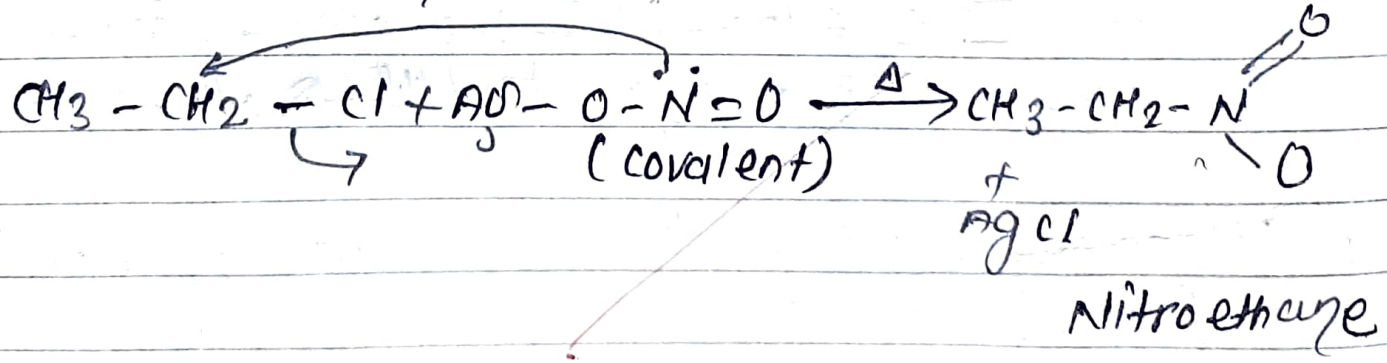 O
CH3 - CH2 - Cl + Ag - O - N̈ = O ⟶ Δ CH3 - CH2 - N
(covalent) + O
AgCl
Nitroethane